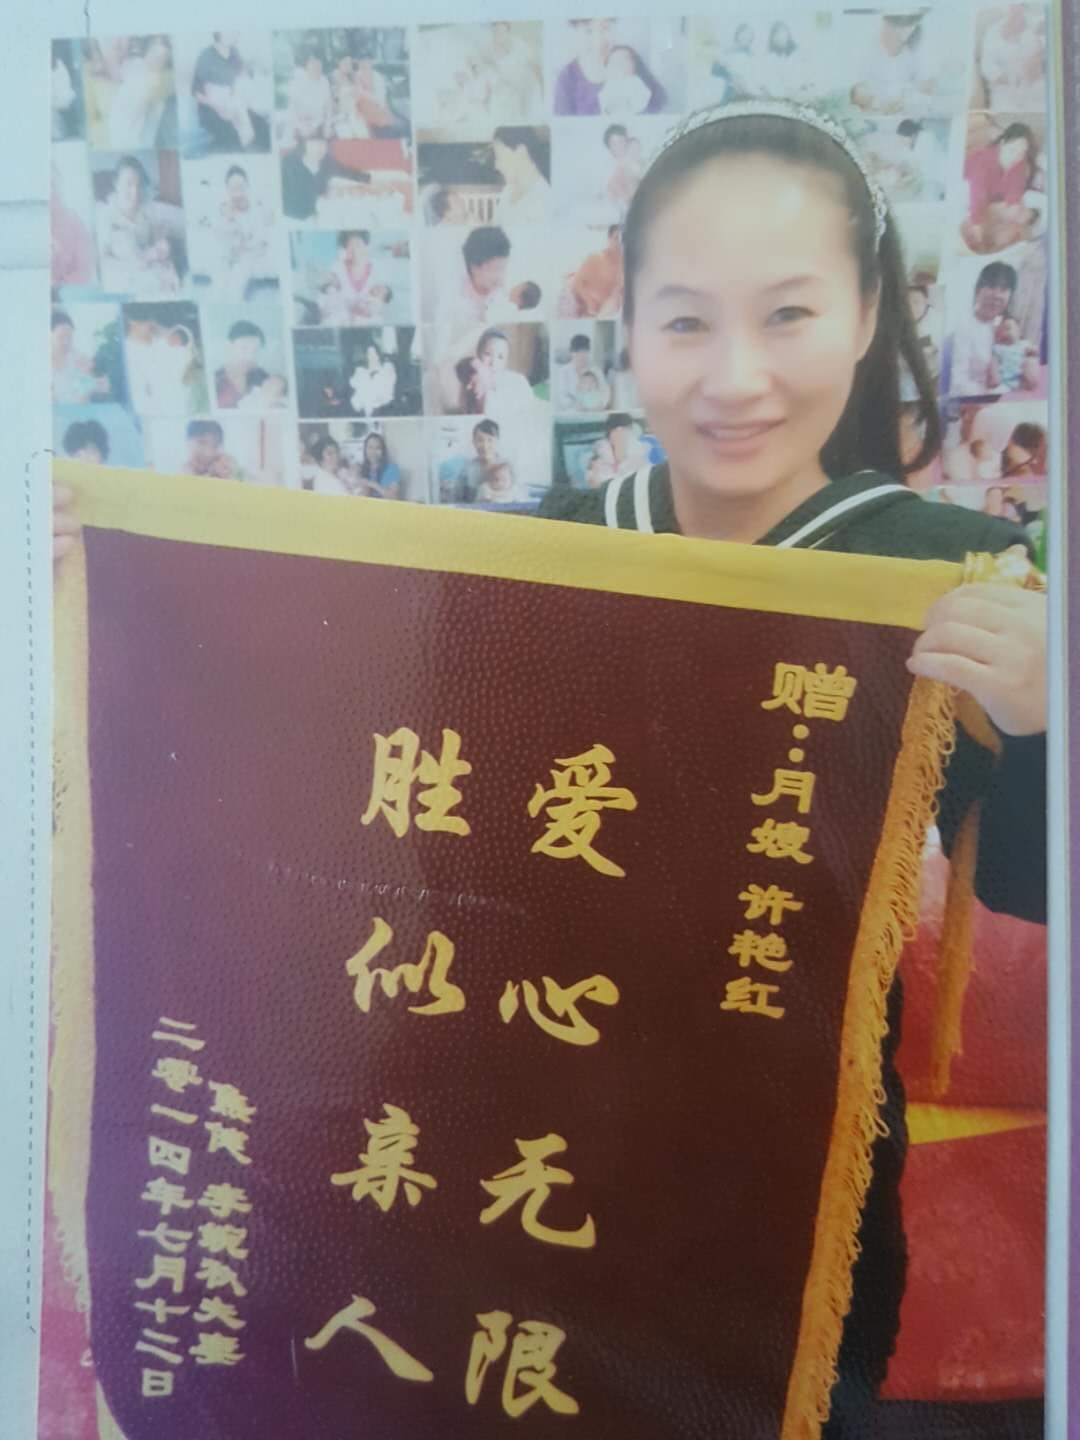 赠：月嫂 许艳红
爱心无限
胜似亲人
李婉秋夫妻
二零一四年七月十二日